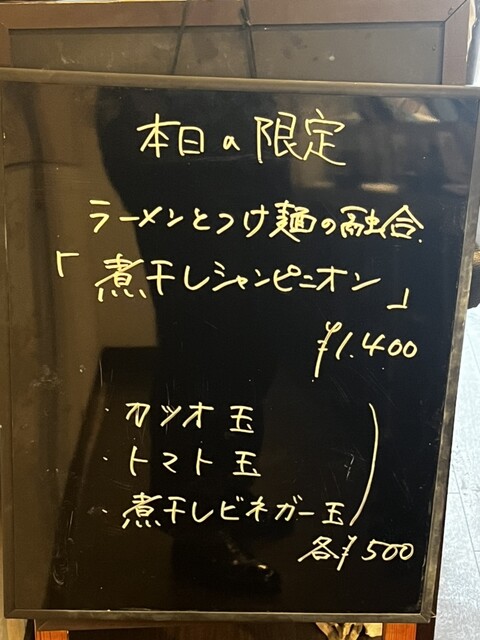 本日の限定
ラーメンとつけ麺の融合
「煮干しシャンピニオン」
¥1.400
・カツオ玉
・トマト玉
・煮干しビネガー玉
各¥500